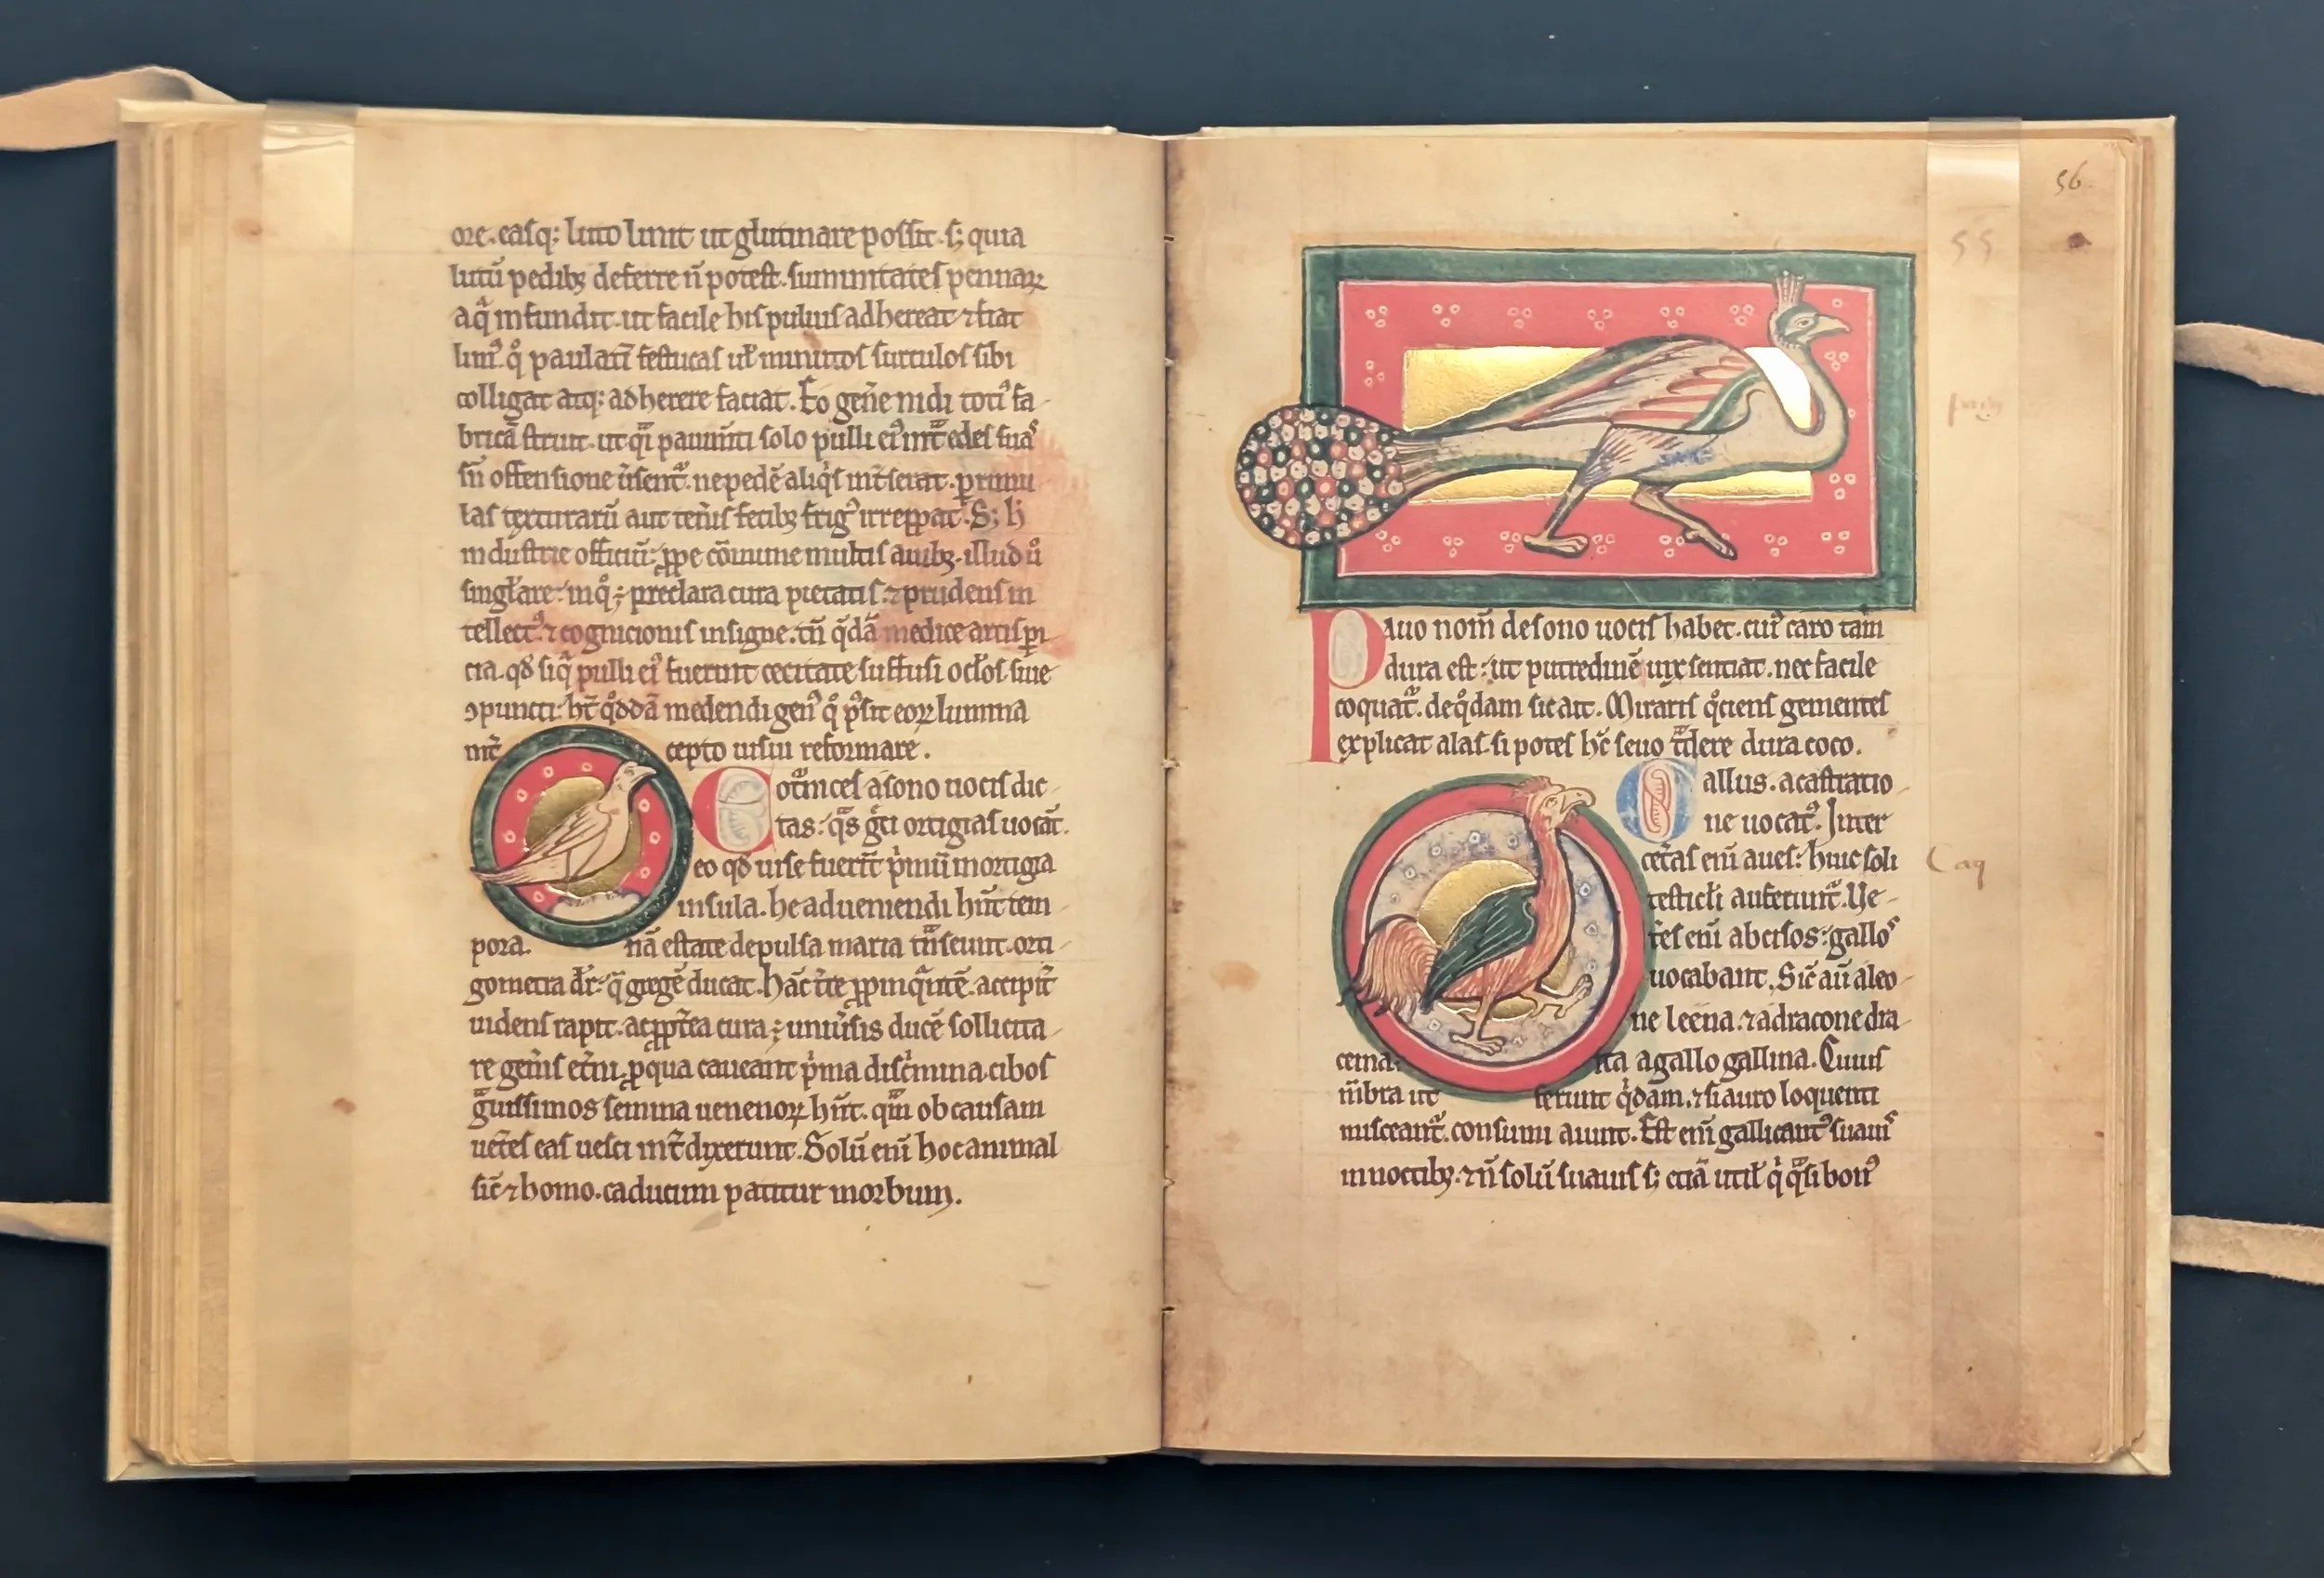 ore. easq; luto linit ut glutinare possit. s; quia
lutū pedibꝫ deferre ñ potest. summitates pennaꝝ
aq̄ infundit. ut facile his puluis adhereat ⁊ fiat
lim᷒. paulatī festucas uł minutos surculos sibi
colligat atq; adherere faciat. Eo geñe nidi toti᷒ fa
bricā struit. ut pauim̄ti solo pulli ei᷒ edes suas
sñ offensione nepedē aliqͥs
las texturarū aut teñis fetibꝫ frig᷒ irreꝑpat. S; h̄
industrie officiū. ꝓpe cōmune multis auibꝫ. illud ů
singłare. preclara cura pietatis. ⁊ prudens in
tellect᷒. ⁊ cognicionis insigne. tñ q̄dā medice artis ꝑi
cia. qd̄ siq̄ pulli ei᷒ fuerint cecitate suffusi octos siue
ↄpuncti. ht̄ medendi gen᷒ possit eoꝝ lumina
int̄cepto uisui reformare.
Coturnices a sono uocis dic
tas. q̄s ortigias uocāt.
eo qd̄ uise fuer̄t pͥmū in ortigia
insula. he adueniendi hn̄t tem
pora. nā estate depulsa maria tn̄seunt. orti
gometra dr̄. q̄ gregē ducat. hāc t̄re ꝓpinq̄ntē. accipit̄
uidens rapit. ac ꝓpt̄ea cura ÷ uniu̇sis ducē sollicita
re geñis ext̄ni. ꝑ qua caueant pͥma discͥmina. cibos
gͣuissimos semina uenenoꝝ hn̄t. qm̄ ob causam
uet̄es eas uesci int̄dixerunt. Solū enī hoc animal
sic̄ ⁊ homo. caducum patitur morbum.
56
55
Pauo nom̄ de sono uocis habet. cui᷒ caro tam
dura est. ut putredinē uix sentiat. nec facile
coquat᷑. de qͦdam sic ait. Miraris qͦciens gementes
explicat alas. si potes hc̄ seuo t̄dere dura coco.
Gallus. a castratio
ne uocat᷒. Inter
cet̄as enī aues. huic soli
testicłi auferunt᷑. Ue
tes enī abcisos. gallos
uocabant. Sic̄ aū a leo
ne leena. ⁊ a dracone dra
cena. ita a gallo gallina. Cuius
m̄bra ut ferunt qͥdam. ⁊ si auro loquenti
misceant᷑. consumi aiunt. Est enī gallicant᷒ suauis
in noctibꝫ. ⁊ ñ solū suauis s; eciā utił qͥ qͣsi bon᷒